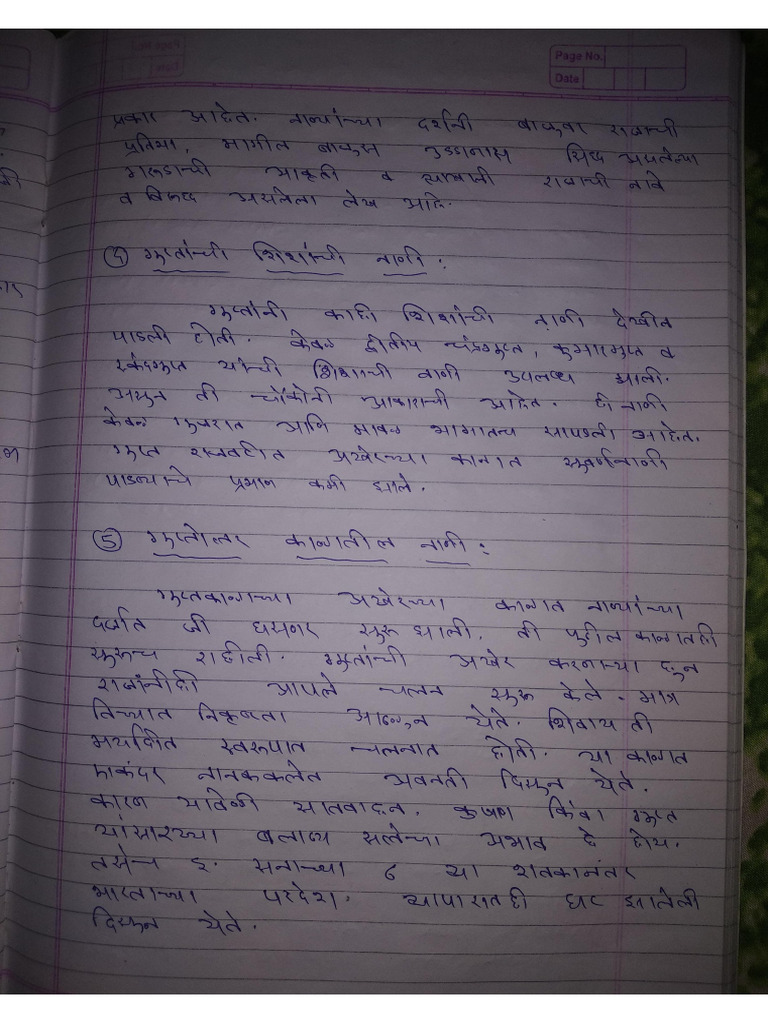 Page No.
Date
प्रकार आहेत. नाण्यांच्या दर्शनी बाजुवर राजाची
प्रतिमा, मागील बाजुस उड्डानास सिद्ध असलेल्या
गरूडाची आकृती व त्याखाली राजाची नावे
व बिरूद असलेला लेख आहे.
④ गुप्तांची शिशांची नाणी :
गुप्तांनी काही शिशांची नाणी देखील
पाडली होती. केवळ द्वीतीय चंद्रगुप्त, कुमारगुप्त व
स्कंदगुप्त यांची शिशाची नाणी उपलब्ध झाली.
असुन ती चौकोनी आकाराची आहेत. ही नाणी
केवळ गुजरात आणि माळवा भागातच सापडली आहेत.
गुप्त राजवटीत अखेरच्या काळात सुवर्णनाणी
पाडल्याचे प्रमाण कमी झाले.
⑤ गुप्तोत्तर काळातील नाणी :
गुप्तकाळाच्या अखेरच्या काळात नाण्यांच्या
दर्जात जी घसरण सुरू झाली. ती पुढील काळातही
सुरूच राहीली. गुप्तांची अखेर करणाऱ्या हुन
राजांनीही आपले चलन सुरू केले. मात्र
तिच्यात निकृष्टता आढळुन येते. शिवाय ती
मर्यादित स्वरूपात चलनात होती. या काळात
एकंदर नाणककलेत अवनती दिसुन येते.
कारण यावेळी सातवाहन, कुषाण किंवा गुप्त
यांसारख्या बलाढ्य सत्तेचा अभाव हे होय.
तसेच इ. सनाच्या ६ व्या शतकानंतर
भारताच्या परदेश. व्यापारातही घट झालेली
दिसुन येते.